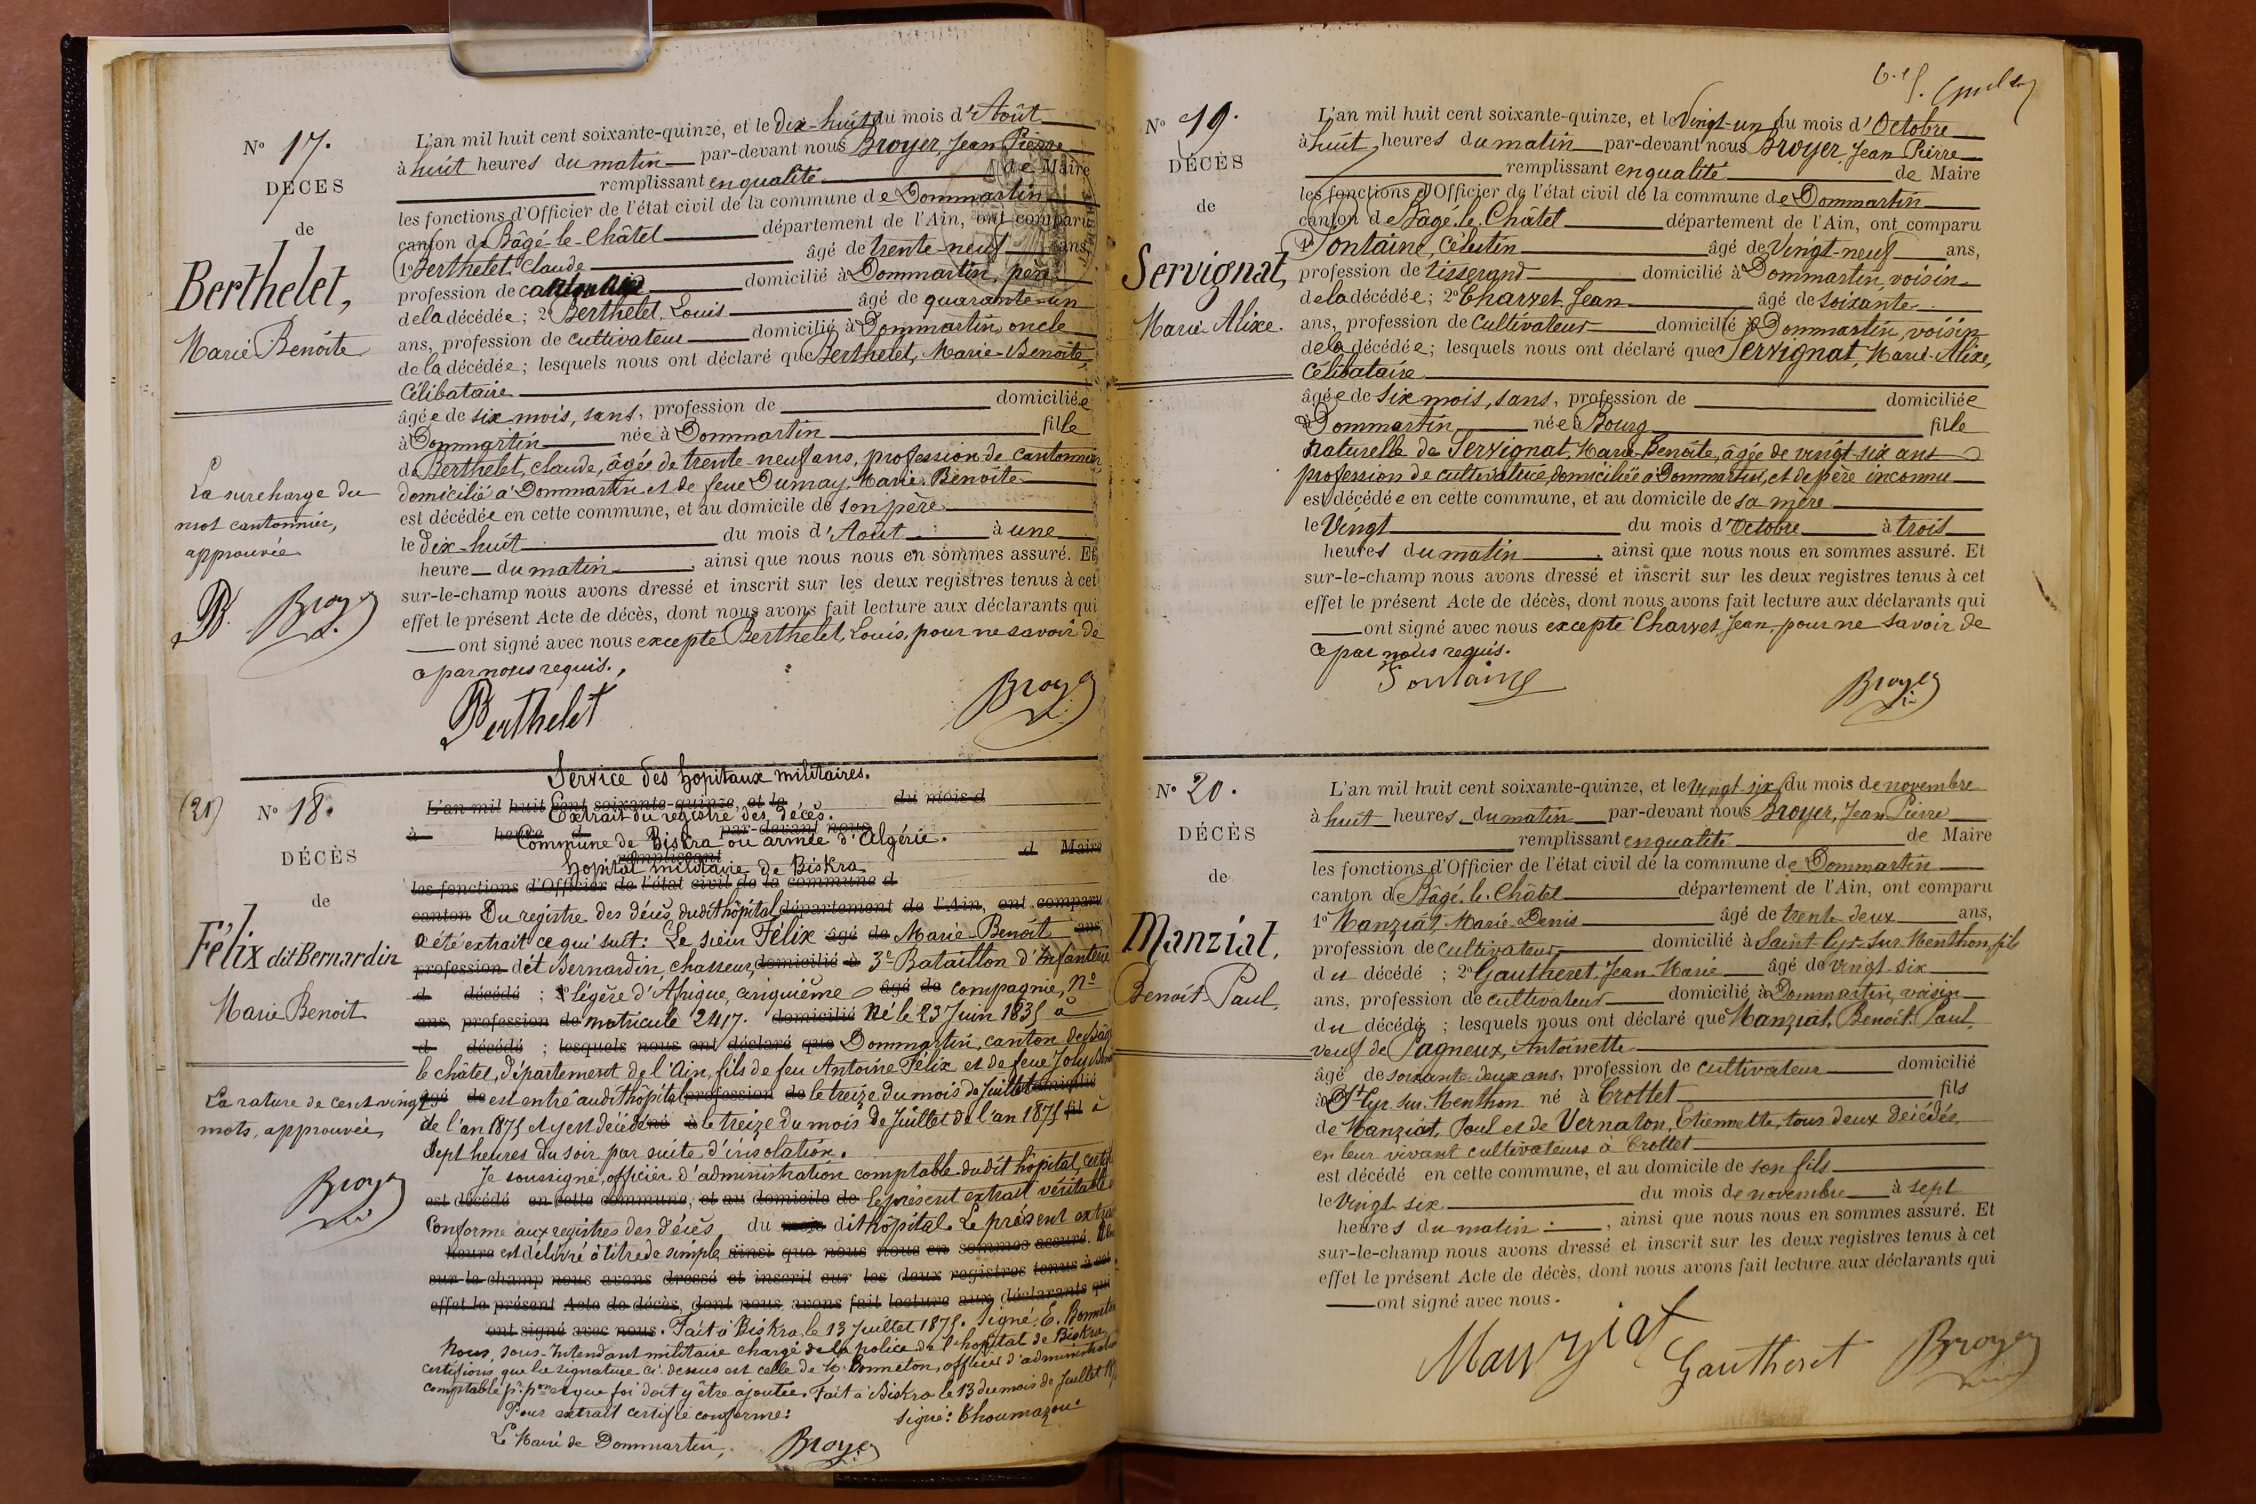 N° 17.
DÉCÈS
de
Berthelet,
Marie Benoîte
La surcharge du
mot cantonnier,
approuvée
B. Broyer
L'an mil huit cent soixante-quinze, et le dix-huit du mois d'Août
à huit heures du matin par-devant nous Broyer, Jean Pierre
remplissant en qualité de Maire
les fonctions d'Officier de l'état civil de la commune de Dommartin
canton de Bâgé-le-Châtel département de l'Ain, ont comparu
1° Berthelet Claude âgé de trente-neuf ans,
profession de cantonnier domicilié à Dommartin, père
de la décédée; 2° Berthelet, Louis âgé de quarante-un
ans, profession de cultivateur domicilié à Dommartin, oncle
de la décédée; lesquels nous ont déclaré que Berthelet, Marie-Benoîte,
Célibataire
âgée de six mois, sans, profession de domiciliée
à Dommartin née à Dommartin fille
de Berthelet, Claude, âgée de trente-neuf ans, profession de cantonnier
domicilié à Dommartin et de feue Dumay, Marie Benoîte
est décédée en cette commune, et au domicile de son père
le dix-huit du mois d'Août à une
heure du matin, ainsi que nous nous en sommes assuré. Et
sur-le-champ nous avons dressé et inscrit sur les deux registres tenus à cet
effet le présent Acte de décès, dont nous avons fait lecture aux déclarants qui
ont signé avec nous excepté Berthelet, Louis, pour ne savoir de
ce par nous requis.
Berthelet Broyer
(21) N° 18.
DÉCÈS
de
Félix dit Bernardin
Marie Benoit
La rature de cent vingt
mots, approuvée
Broyer
Service des hopitaux militaires.
L'an mil huit cent soixante-quinze, et le du mois d
Extrait du registre des décès.
à heure d par-devant nous
Commune de Biskra ou armée d'Algérie.
remplissant d Maire
hopital militaire de Biskra
les fonctions d'Officier de l'état civil de la commune d
canton Du registre des décès dudit hôpital département de l'Ain, ont comparu
a été extrait ce qui suit: Le sieur Félix âgé de Marie-Benoit ans
profession dit Bernardin, chasseur, domicilié à 3e Bataillon d'Infanterie
d décédé ; 2° légère d'Afrique, cinquième âgé de compagnie, N°
ans, profession de matricule 2417. domicilié Né le 23 Juin 1835 à
d décédé ; lesquels nous ont déclaré que Dommartin, canton de Bâgé
le châtel, département de l'Ain, fils de feu Antoine Félix et de feue Joly
âgé de est entré audit hôpital profession de le treize du mois de Juillet domicilié
de l'an 1875 et y est décédé né à le treize du mois de Juillet de l'an 1875 fil à
Sept heures du soir par suite d'insolation.
Je soussigné, officier d'administration comptable dudit hôpital, certifie
est décédé en cette commune, et au domicile de le présent extrait véritable
Conforme aux registres des décès du mois dit hôpital. Le présent extrait
heure est délivré à titre de simple ainsi que nous nous en sommes assuré. Et
sur-le-champ nous avons dressé et inscrit sur les deux registres tenus à cet
effet le présent Acte de décès, dont nous avons fait lecture aux déclarants qui
ont signé avec nous. Fait à Biskra, le 13 Juillet 1875. Signé: E. Bonneton
Nous, sous-Intendant militaire chargé de la police de l'hopital de Biskra
certifions que la signature ci-dessus est celle de Mr Bonneton, officier d'administration
comptable et que foi doit y être ajoutée. Fait à Biskra le 13 du mois de Juillet
Pour extrait certifié conforme: Signé: Choumazou.
Le Maire de Dommartin, Broyer
N° 19.
DÉCÈS
de
Servignat,
Marie Alixe.
L'an mil huit cent soixante-quinze, et le Vingt-un du mois d'Octobre
à huit heures du matin par-devant nous Broyer, Jean Pierre
remplissant en qualité de Maire
les fonctions d'Officier de l'état civil de la commune de Dommartin
canton de Bâgé-le-Châtel département de l'Ain, ont comparu
1° Fontaine, Célestin âgé de Vingt-neuf ans,
profession de tisserand domicilié à Dommartin, voisin
de la décédée; 2° Charvet Jean âgé de soixante
ans, profession de cultivateur domicilié à Dommartin, voisin
de la décédée; lesquels nous ont déclaré que Servignat, Marie-Alixe,
Célibataire
âgée de six mois, sans, profession de domiciliée
à Dommartin née à Bourg fille
naturelle de Servignat, Marie-Benoîte, âgée de vingt-six ans
profession de cultivatrice domiciliée à Dommartin, et de père inconnu
est décédée en cette commune, et au domicile de sa mère
le Vingt du mois d'Octobre à trois
heures du matin, ainsi que nous nous en sommes assuré. Et
sur-le-champ nous avons dressé et inscrit sur les deux registres tenus à cet
effet le présent Acte de décès, dont nous avons fait lecture aux déclarants qui
ont signé avec nous excepté Charvet, Jean, pour ne savoir de
ce par nous requis.
Fontaine Broyer
N° 20.
DÉCÈS
de
Manziat,
Benoît-Paul.
L'an mil huit cent soixante-quinze, et le vingt-six du mois de novembre
à huit heures du matin par-devant nous Broyer, Jean Pierre
remplissant en qualité de Maire
les fonctions d'Officier de l'état civil de la commune de Dommartin
canton de Bâgé-le-Châtel département de l'Ain, ont comparu
1° Manziat, Marie-Denis âgé de trente-deux ans,
profession de cultivateur domicilié à Saint-Cyr-sur-Menthon, fils
du décédé ; 2° Gautheret, Jean-Marie âgé de vingt-six
ans, profession de cultivateur domicilié à Dommartin, voisin
du décédé ; lesquels nous ont déclaré que Manziat, Benoît-Paul,
veuf de Pagneux, Antoinette
âgé de soixante-deux ans, profession de cultivateur domicilié
à St Cyr-sur-Menthon né à Crottet fils
de Manziat, Paul et de Vernaton, Etiennette, tous deux décédés,
en leur vivant cultivateurs à Crottet
est décédé en cette commune, et au domicile de son fils
le Vingt-six du mois de novembre à sept
heures du matin, ainsi que nous nous en sommes assuré. Et
sur-le-champ nous avons dressé et inscrit sur les deux registres tenus à cet
effet le présent Acte de décès, dont nous avons fait lecture aux déclarants qui
ont signé avec nous.
Manziat Gautheret Broyer